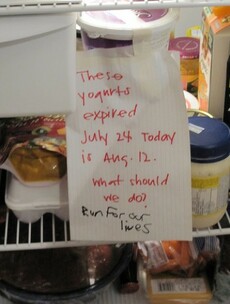 These
yogurts
expired
July 24 Today
is Aug. 12.
what should
we do?
Run For our
lives